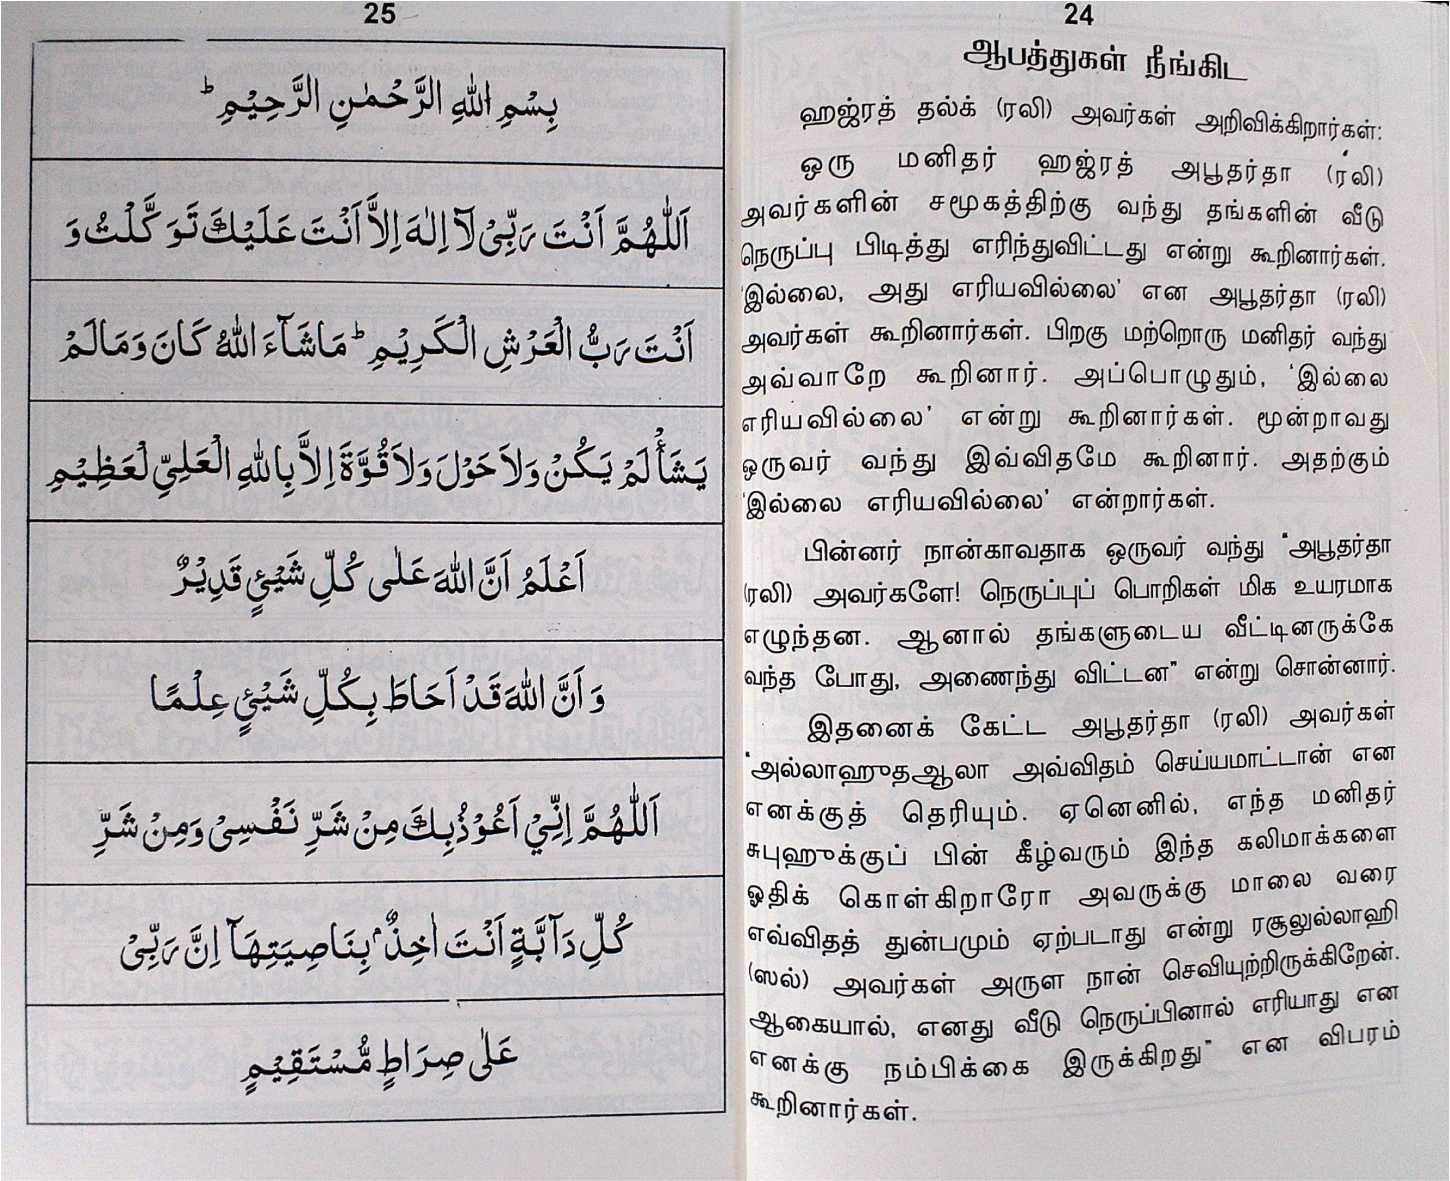 24
ஆபத்துகள் நீங்கிட
ஹஜ்ரத் தல்க் (ரலி) அவர்கள் அறிவிக்கிறார்கள்:
ஒரு மனிதர் ஹஜ்ரத் அபூதர்தா (ரலி)
அவர்களின் சமூகத்திற்கு வந்து தங்களின் வீடு
நெருப்பு பிடித்து எரிந்துவிட்டது என்று கூறினார்கள்.
'இல்லை, அது எரியவில்லை' என அபூதர்தா (ரலி)
அவர்கள் கூறினார்கள். பிறகு மற்றொரு மனிதர் வந்து
அவ்வாறே கூறினார். அப்பொழுதும், 'இல்லை
எரியவில்லை' என்று கூறினார்கள். மூன்றாவது
ஒருவர் வந்து இவ்விதமே கூறினார். அதற்கும்
'இல்லை எரியவில்லை' என்றார்கள்.
பின்னர் நான்காவதாக ஒருவர் வந்து "அபூதர்தா
(ரலி) அவர்களே! நெருப்புப் பொறிகள் மிக உயரமாக
எழுந்தன. ஆனால் தங்களுடைய வீட்டினருக்கே
வந்த போது, அணைந்து விட்டன" என்று சொன்னார்.
இதனைக் கேட்ட அபூதர்தா (ரலி) அவர்கள்
"அல்லாஹுதஆலா அவ்விதம் செய்யமாட்டான் என
எனக்குத் தெரியும். ஏனெனில், எந்த மனிதர்
சுபுஹுக்குப் பின் கீழ்வரும் இந்த கலிமாக்களை
ஓதிக் கொள்கிறாரோ அவருக்கு மாலை வரை
எவ்விதத் துன்பமும் ஏற்படாது என்று ரசூலுல்லாஹி
(ஸல்) அவர்கள் அருள நான் செவியுற்றிருக்கிறேன்.
ஆகையால், எனது வீடு நெருப்பினால் எரியாது என
எனக்கு நம்பிக்கை இருக்கிறது" என விபரம்
கூறினார்கள்.
25
بِسْمِ اللهِ الرَّحْمٰنِ الرَّحِيْمِ ؕ
اَللّٰهُمَّ اَنْتَ رَبِّىْ لَآ اِلٰهَ اِلاَّ اَنْتَ عَلَيْكَ تَوَكَّلْتُ وَ
اَنْتَ رَبُّ الْعَرْشِ الْكَرِيْمِ ؕ مَاشَآءَ اللهُ كَانَ وَمَالَمْ
يَشَأْ لَمْ يَكُنْ وَلاَ حَوْلَ وَلاَ قُوَّةَ اِلاَّ بِاللهِ الْعَلِيِّ لْعَظِيْمِ
اَعْلَمُ اَنَّ اللهَ عَلٰى كُلِّ شَيْئٍ قَدِيْرٌ
وَ اَنَّ اللهَ قَدْ اَحَاطَ بِكُلِّ شَيْئٍ عِلْمًا
اَللّٰهُمَّ اِنِّيْ اَعُوْذُ بِكَ مِنْ شَرِّ نَفْسِىْ وَمِنْ شَرِّ
كُلِّ دَآبَّةٍ اَنْتَ اٰخِذٌ ۢ بِنَاصِيَتِهَآ اِنَّ رَبِّىْ
عَلٰى صِرَاطٍ مُّسْتَقِيْمٍ